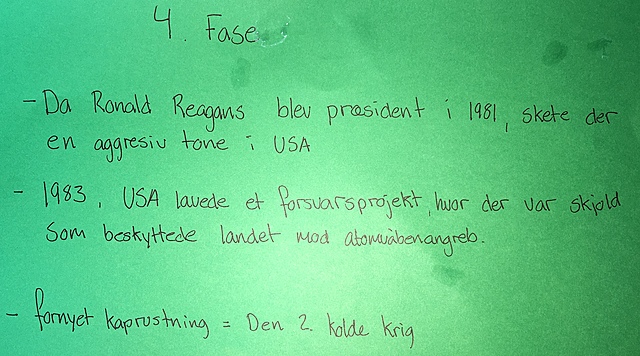 4. Fase
- Da Ronald Reagans blev præsident i 1981, skete der
en aggresiv tone i USA
- 1983, USA lavede et forsvarsprojekt, hvor der var skjold
som beskyttede landet mod atomvåbenangreb.
- fornyet kaprustning = Den 2. kolde krig